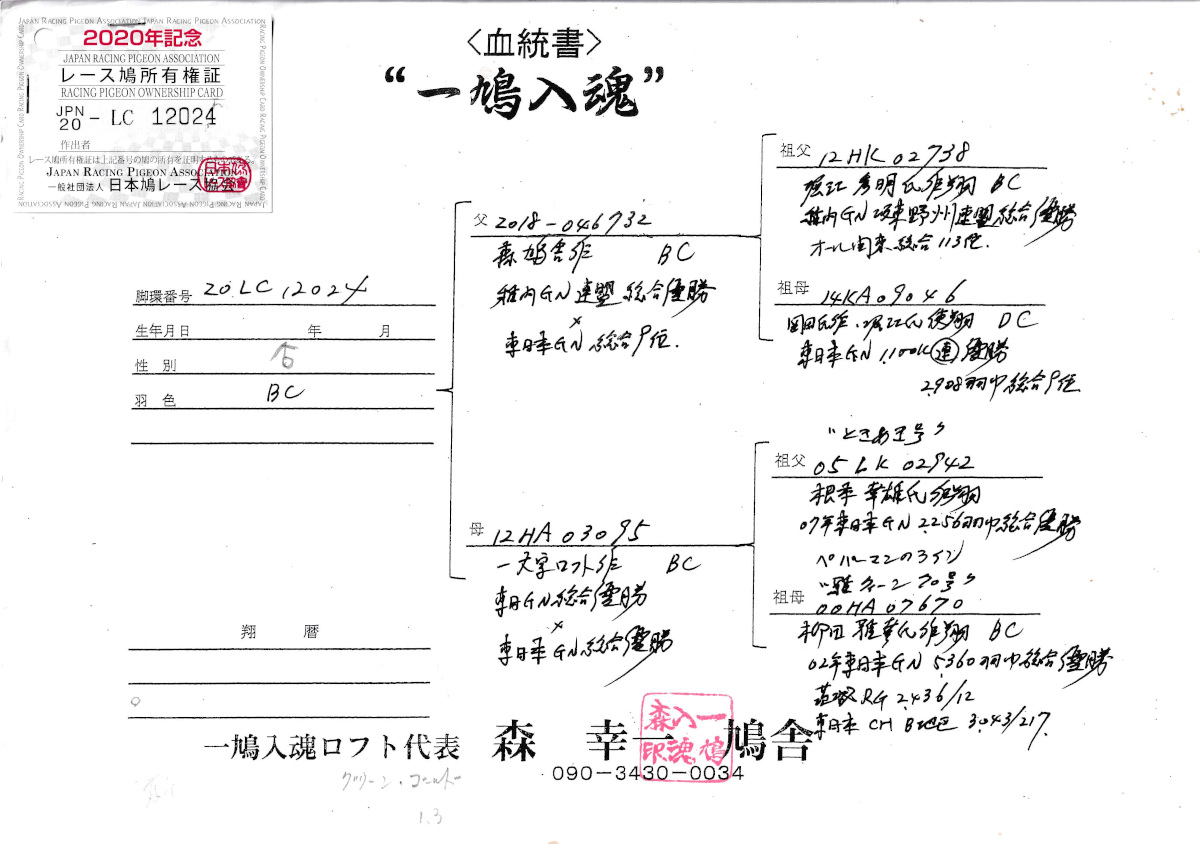 JAPAN RACING PIGEON ASSOCIATION JAPAN RACING PIGEON ASSOCIATION
2020年記念
JAPAN RACING PIGEON ASSOCIATION
レース鳩所有権証
RACING PIGEON OWNERSHIP CARD
JPN
20 - LC 12024
作出者
レース鳩所有権証は上記番号の鳩の所有を証明するものである。
JAPAN RACING PIGEON ASSOCIATION
一般社団法人 日本鳩レース協会
〈血統書〉
“一鳩入魂”
脚環番号 20LC12024
生年月日 年 月
性別
羽色 BC
翔 暦
父 2018-046732
森鳩舎作 BC
稚内GN 連盟 総合優勝
×
東日本GN 総合9位.
母 12HA03095
一文字ロフト作 BC
東日GN総合優勝
×
東日本GN総合優勝
祖父 12HK02738
堀江 明氏作翔 BC
稚内GN 坂東野州連盟総合優勝
オール関東総合113位.
祖母 14KA09046
岡田氏作.堀江氏使翔 DC
東日本GN 1,100K 連 優勝
2,908羽中総合9位
"ときあき号"
祖父 05LK02942
根本 幸雄氏作翔
07年東日本GN 2256羽中総合優勝
ペパーマンのライン
祖母 00HA07670
柳田 氏作翔 BC
02年東日本GN 5,360羽中総合優勝
RG 2,436/12
東日本CH B地区 3,043/217.
一鳩入魂ロフト代表 森 幸一 鳩舎
090-3430-0034
一鳩入魂森印
グリーン・ゴールド
1.3